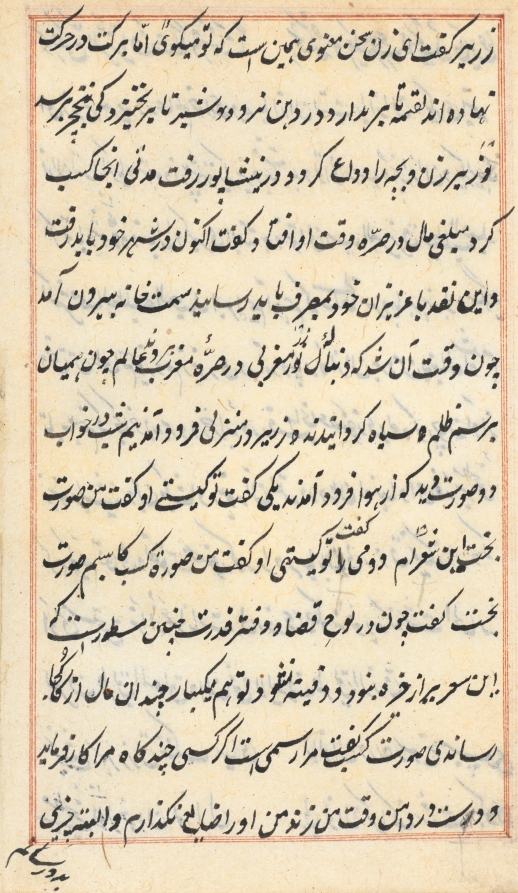 زبیر گفت ای زن سخن معنوی همین است که تو میکوئی امّا برکت در حرکت
نهاده اند لقمه تا بر ندارد در دهن نرود و شیر تا بر نخیزد کی بنخچیر رسد
زبیر زن و بچه را وداع کرد و در نیشاپور رفت مدتی انجا کسب
کرد مبلغی مال در صرّه وقت او افتاد گفت اکنون در شهر خود باید رفت
و این نقد با عزیزان خود بمصرف باید رسانید سمت خانه بیرون آمد
چون وقت آن شد که دنبال زر مغربی در صرّه مغرب و عالم چون همیان
برسم ظلمه سیاه کردانیدند زبیر در منزلی فرود آمد نیم شب در خواب
دو صورت دید که از هوا فرود آمدند یکی گفت تو کیستی او گفت من صورت
بخت ابن ام دومی را گفت تو کیستی او گفت من صورة کسب کاسبم صورت
بخت گفت چون در لوح قضا و دفتر قدرت چنین مسطورست که
این زبیر از خیره بنود و دفینه نقود تو هم یکبار چندان مال از کجا
رساندی صورت کسب گفت مرا رسمی است اگر کسی چند کاه مرا کار فرماید
و دست در دامن وقت من زند من او را ضایع نگذارم و البته چیزی
بدو رسانم